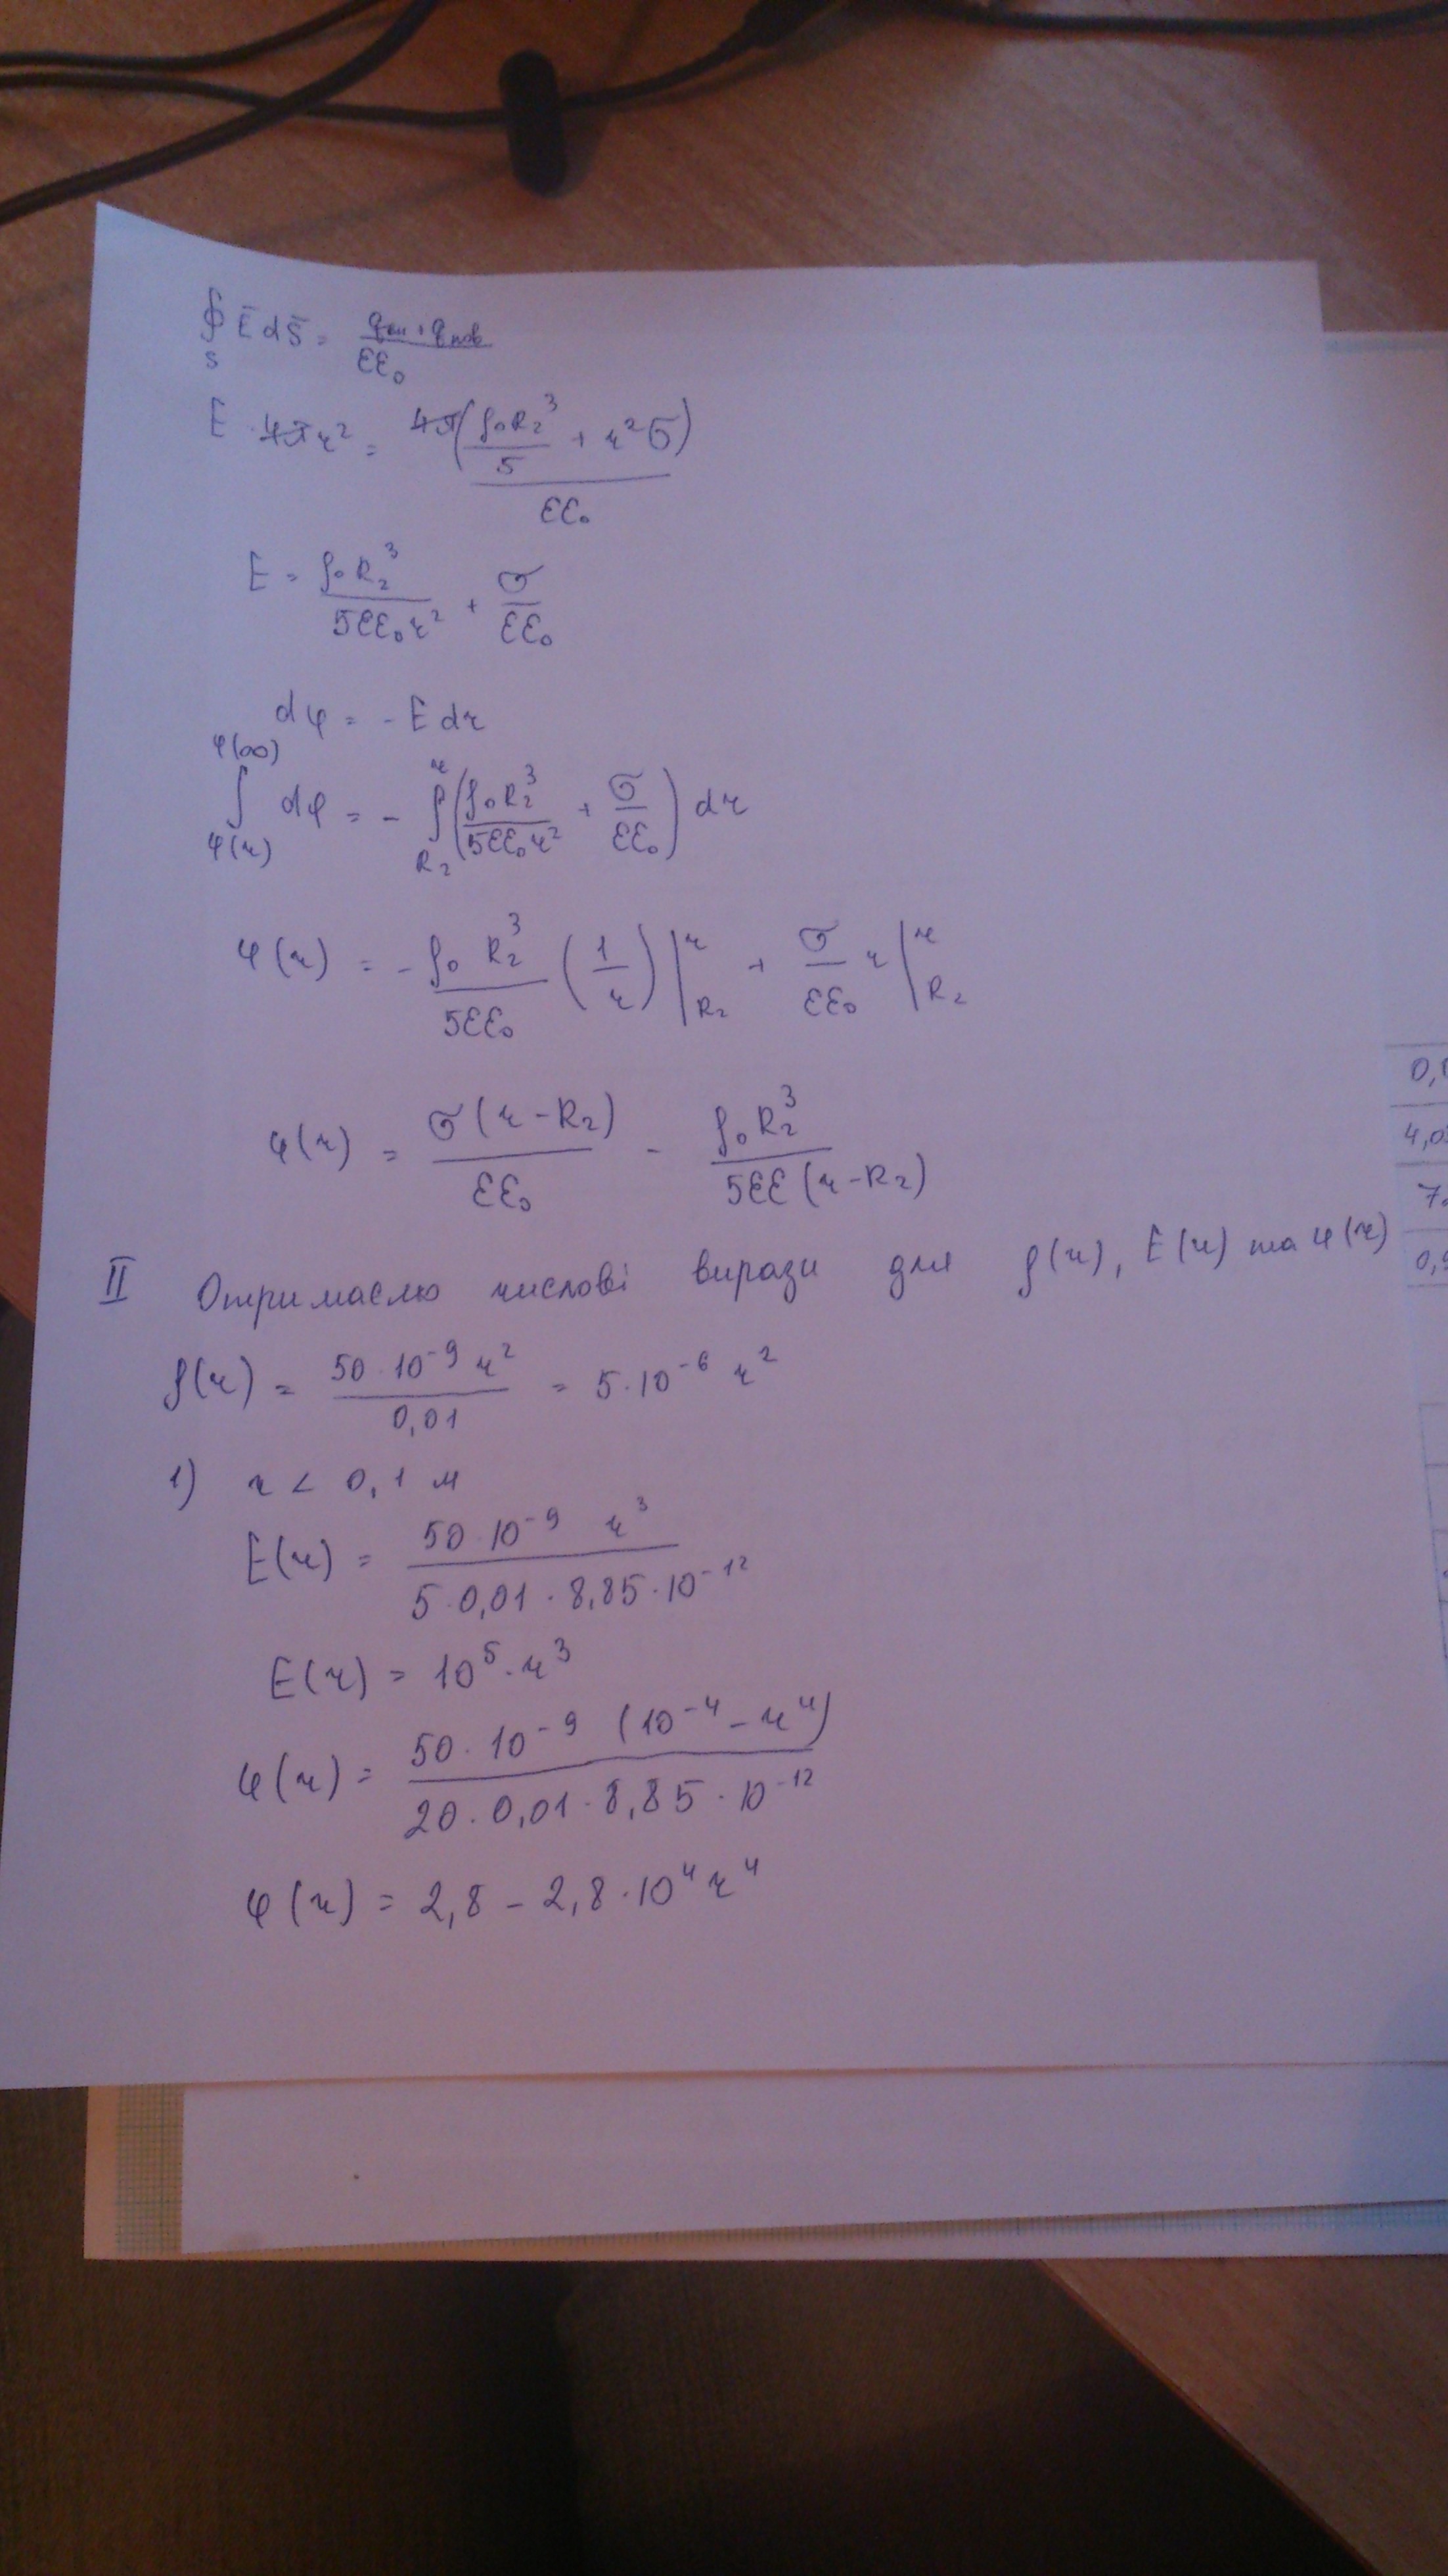 ∮_S Ē dS̄ = (qоб + qпов)/(εε₀)
E · 4πr² = 4π(ρ₀R₂³/5 + r²σ)/(εε₀)
E = ρ₀R₂³/(5εε₀r²) + σ/(εε₀)
dφ = - E dr
∫_{φ(r)}^{φ(∞)} dφ = - ∫_{R₂}^{r} (ρ₀R₂³/(5εε₀r²) + σ/(εε₀)) dr
φ(r) = - ρ₀ R₂³/(5εε₀) (1/r)|_{R₂}^{r} + σ/(εε₀) r|_{R₂}^{r}
φ(r) = σ(r-R₂)/(εε₀) - ρ₀R₂³/(5εε(r-R₂))
II Отримаємо числові вирази для ρ(r), E(r) та φ(r)
ρ(r) = 50·10⁻⁹ r²/0,01 = 5·10⁻⁶ r²
1) r < 0,1 м
E(r) = 50·10⁻⁹ r³/(5·0,01·8,85·10⁻¹²)
E(r) = 10⁵·r³
φ(r) = 50·10⁻⁹ (10⁻⁴ - r⁴)/(20·0,01·8,85·10⁻¹²)
φ(r) = 2,8 - 2,8·10⁴ r⁴